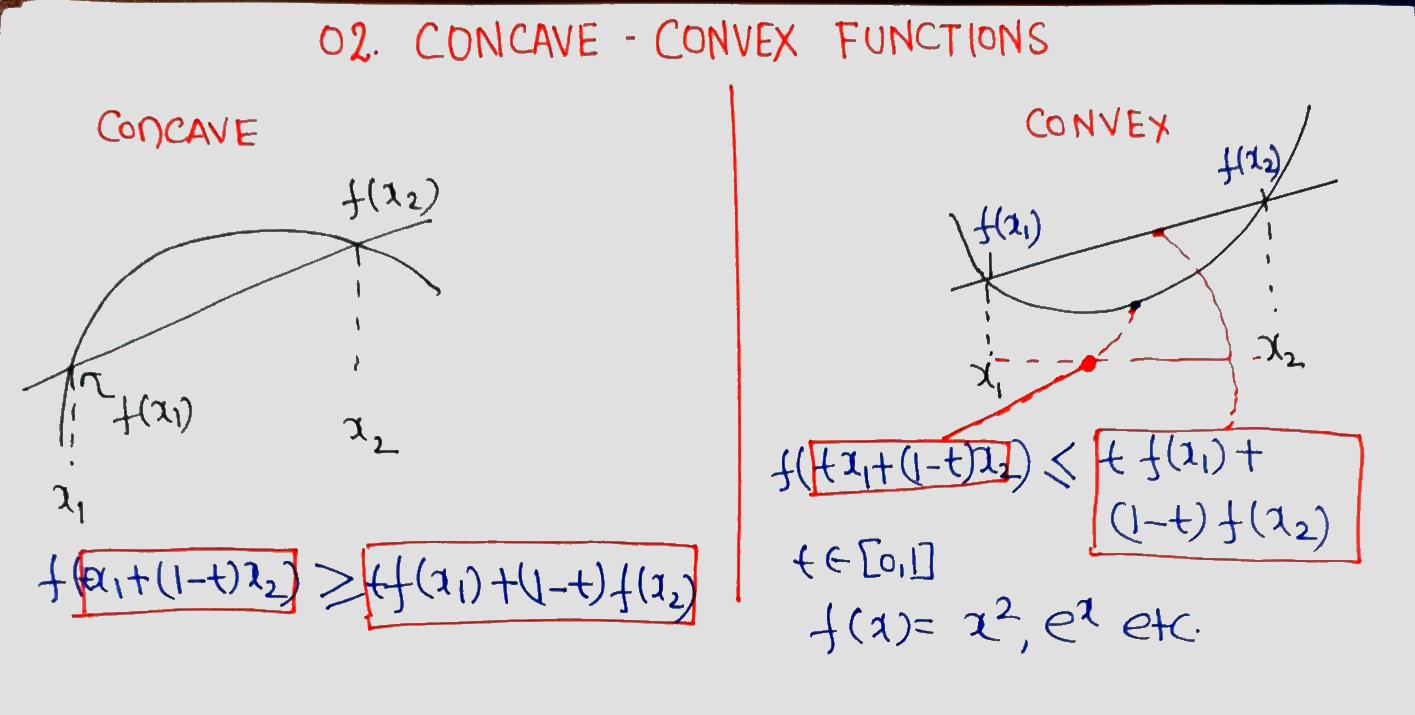 02. CONCAVE - CONVEX FUNCTIONS
CONCAVE
f(x₂)
f(x₁)
x₂
x₁
f(tx₁+(1-t)x₂) ≥ tf(x₁)+(1-t)f(x₂)
CONVEX
f(x₂)
f(x₁)
x₁
x₂
f(tx₁+(1-t)x₂) ≤ t f(x₁)+
(1-t) f(x₂)
t ∈ [0,1]
f(x)= x², eˣ etc.